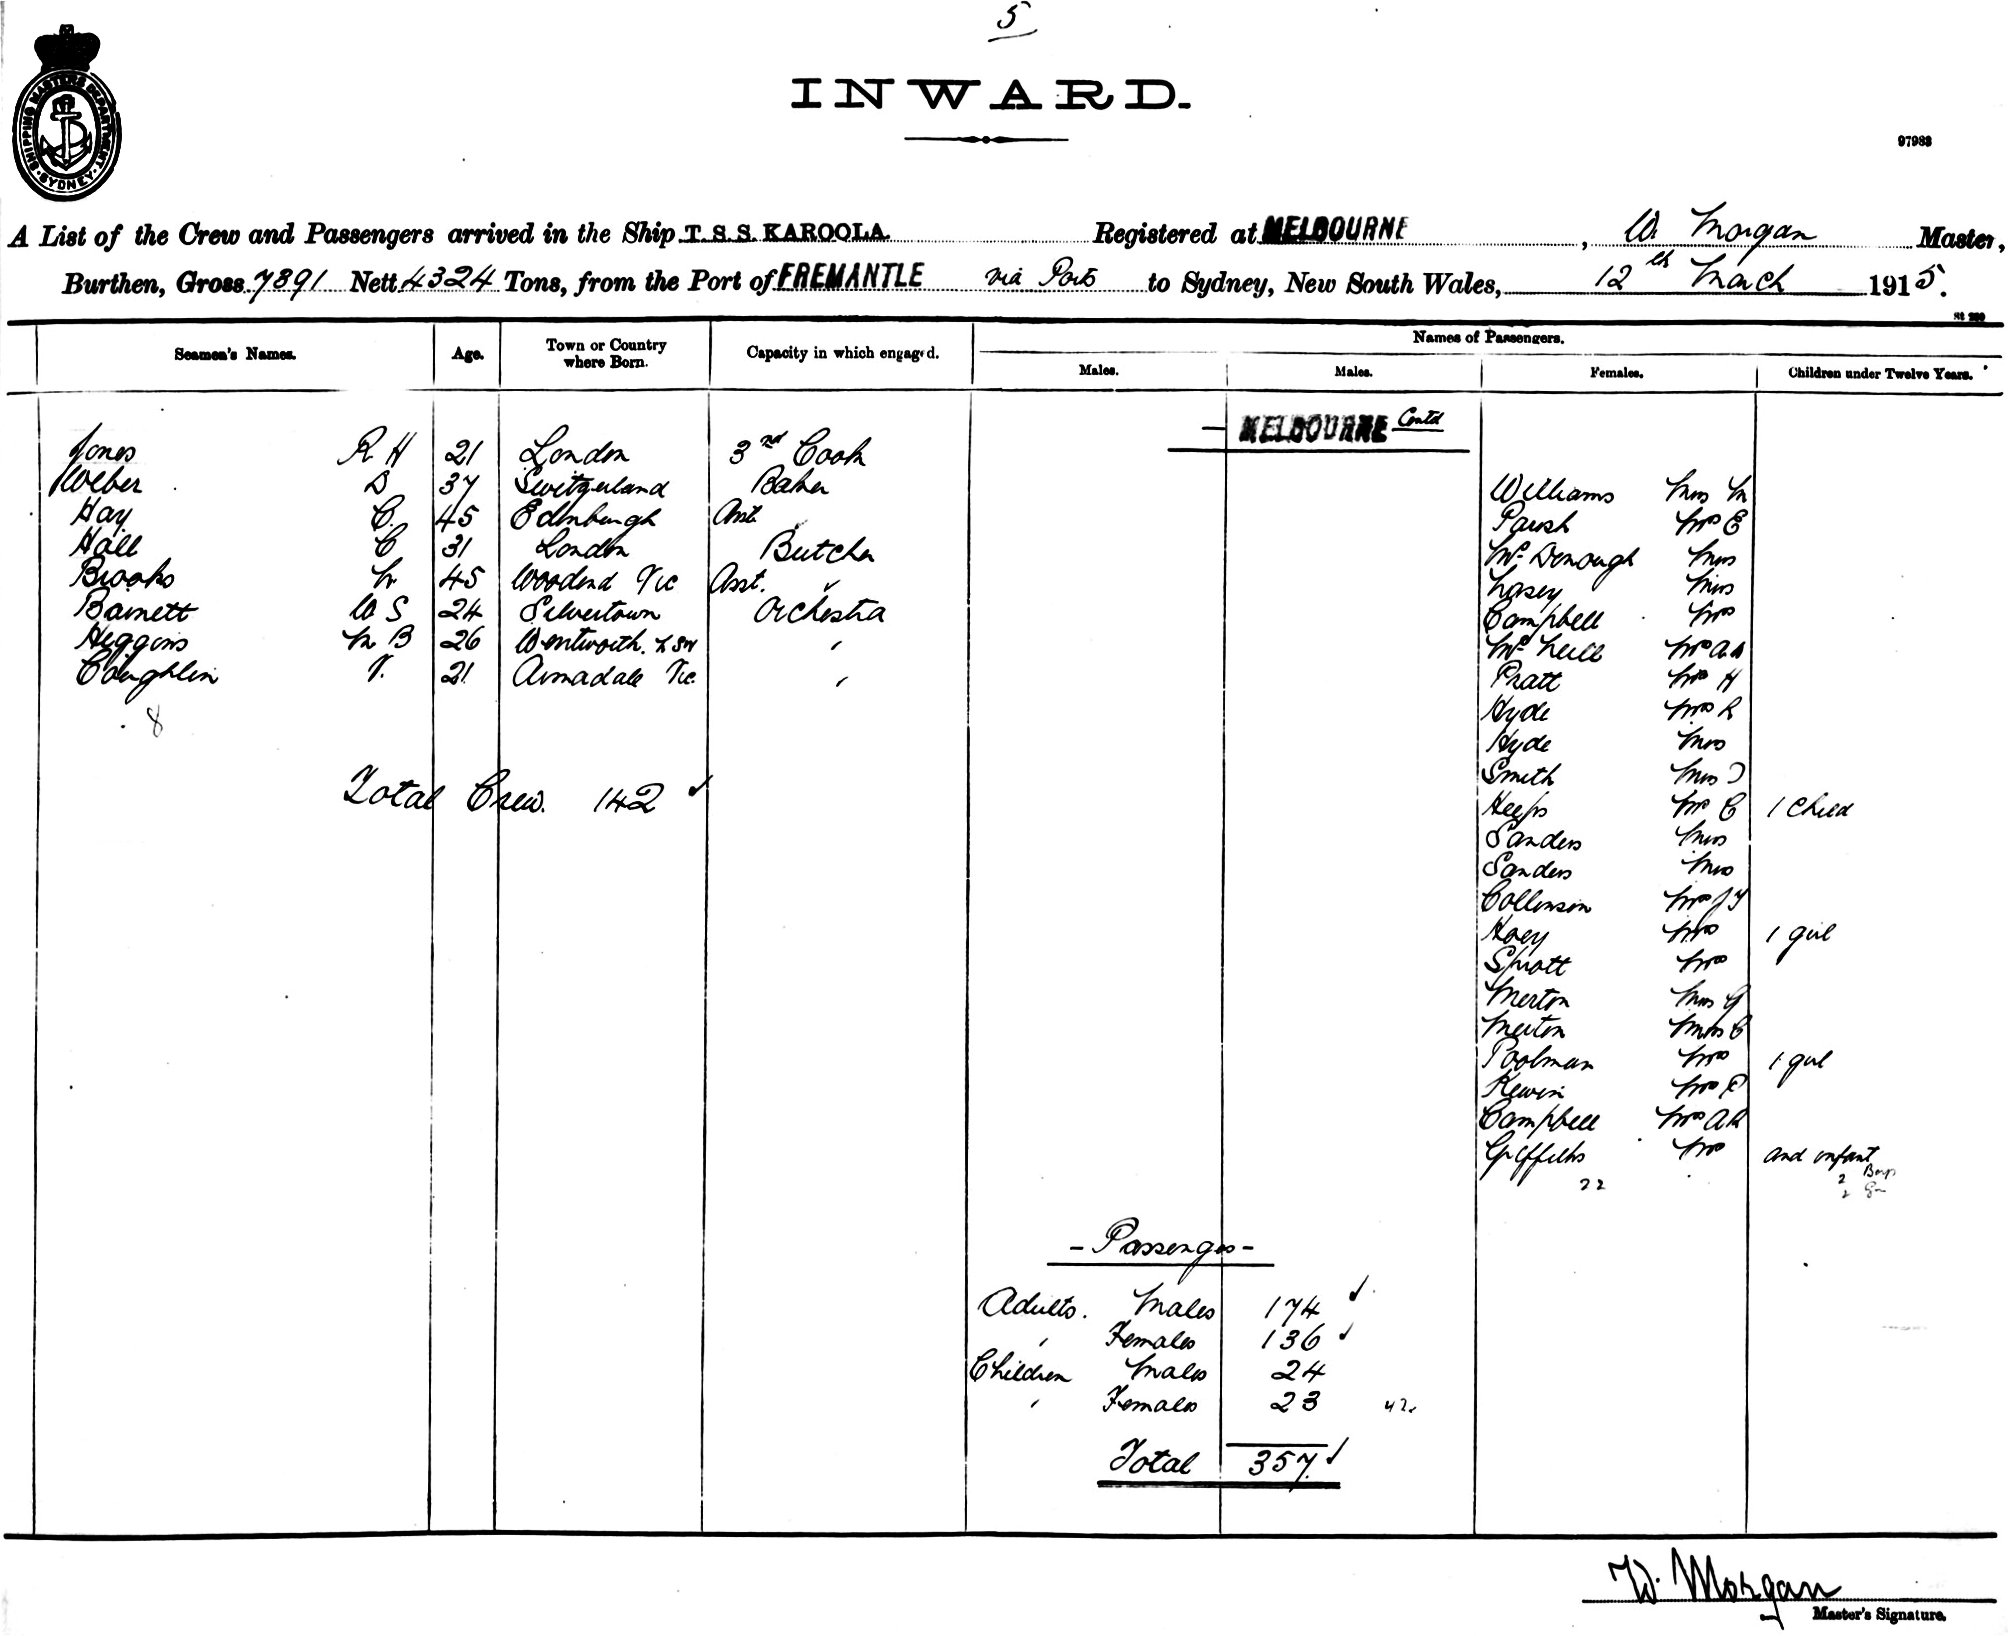 5
INWARD.
SHIPPING MASTERS DEPARTMENT SYDNEY
97983
A List of the Crew and Passengers arrived in the Ship T.S.S. KAROOLA Registered at MELBOURNE, W. Morgan Master,
Burthen, Gross 7391 Nett 4324 Tons, from the Port of FREMANTLE via Ports to Sydney, New South Wales, 12th March 1915.
Seamen's Names. Age. Town or Country where Born. Capacity in which engaged. Names of Passengers.
Males. Males. Females. Children under Twelve Years.
MELBOURNE Contd
Jones R H 21 London 3rd Cook
Weber D 37 Switzerland Baker
Hay C. 45 Edinburgh Asst. "
Hall C 31 London Butcher
Brooks 45 Woodend Vic Asst. "
Barnett W S 24 Silvertown Orchestra
Higgins M B 26 Wentworth. NSW "
Coughlin V. 21 Armadale Vic. "
8
Total Crew. 142
Williams Miss M
Parish Mrs E
McDonough Miss
Lasey Miss
Campbell Mrs
McNeill Mrs
Pratt Mrs H
Hyde Mrs R
Hyde Miss
Smith Miss
Heeps Mrs C 1 Child
Sanders Miss
Sanders Miss
Collinson Mrs
Hoey Mrs 1 girl
Spratt Mrs
Merton Miss G
Merton Miss C
Poolman Mrs 1 girl
Kewin Mrs
Campbell Mrs
Griffiths Mrs and infant
22
2 Boys
2
- Passengers -
Adults. Males 174
" Females 136
Children Males 24
" Females 23
47
Total 357.
W. Morgan
Master's Signature.